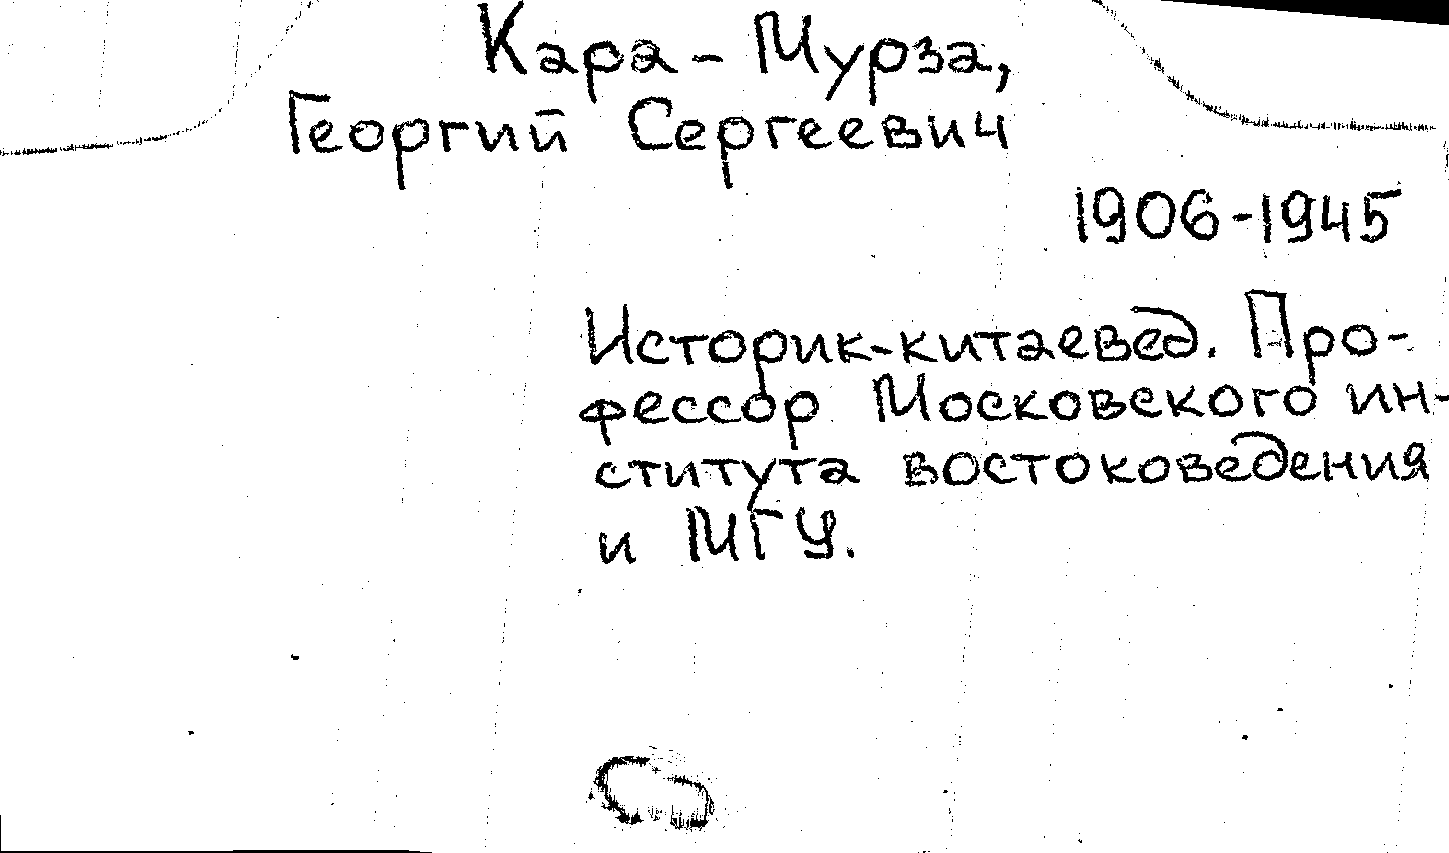 Кара-Мурза,
Георгий Сергеевич
1906-1945
Историк-китаевед. Про-
фессор Московского ин-
ститута востоковедения
и МГУ.